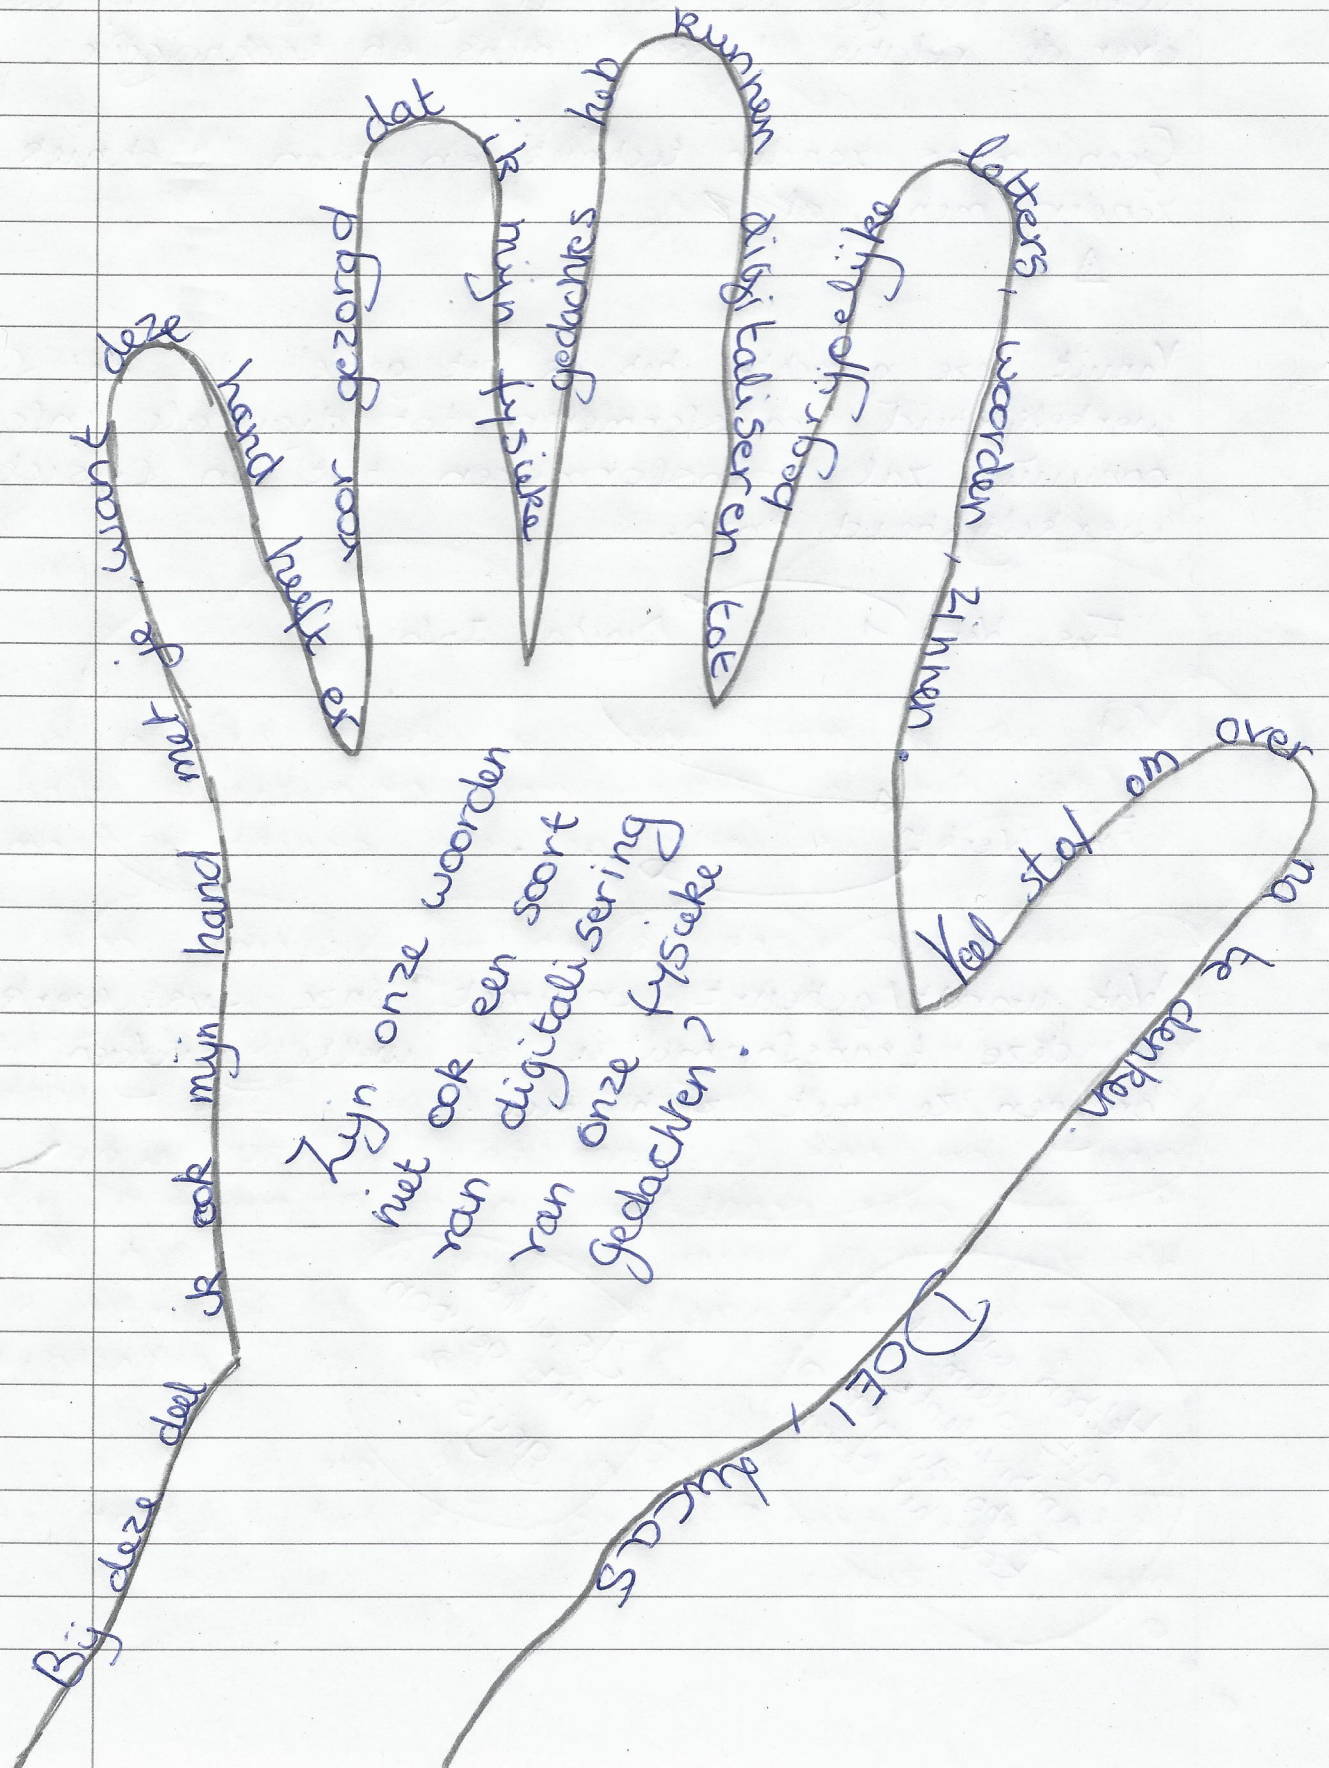 Bij deze deel ik ook mijn hand met je, want deze hand heeft er voor gezorgd dat ik mijn fysieke gedachtes heb kunnen digitaliseren tot begrijpelijke letters, woorden, zinnen.
Veel stof om over na te denken.
DOEI,
Lucas
Zijn onze woorden
niet ook een soort
van digitalisering
van onze fysieke
gedachten?